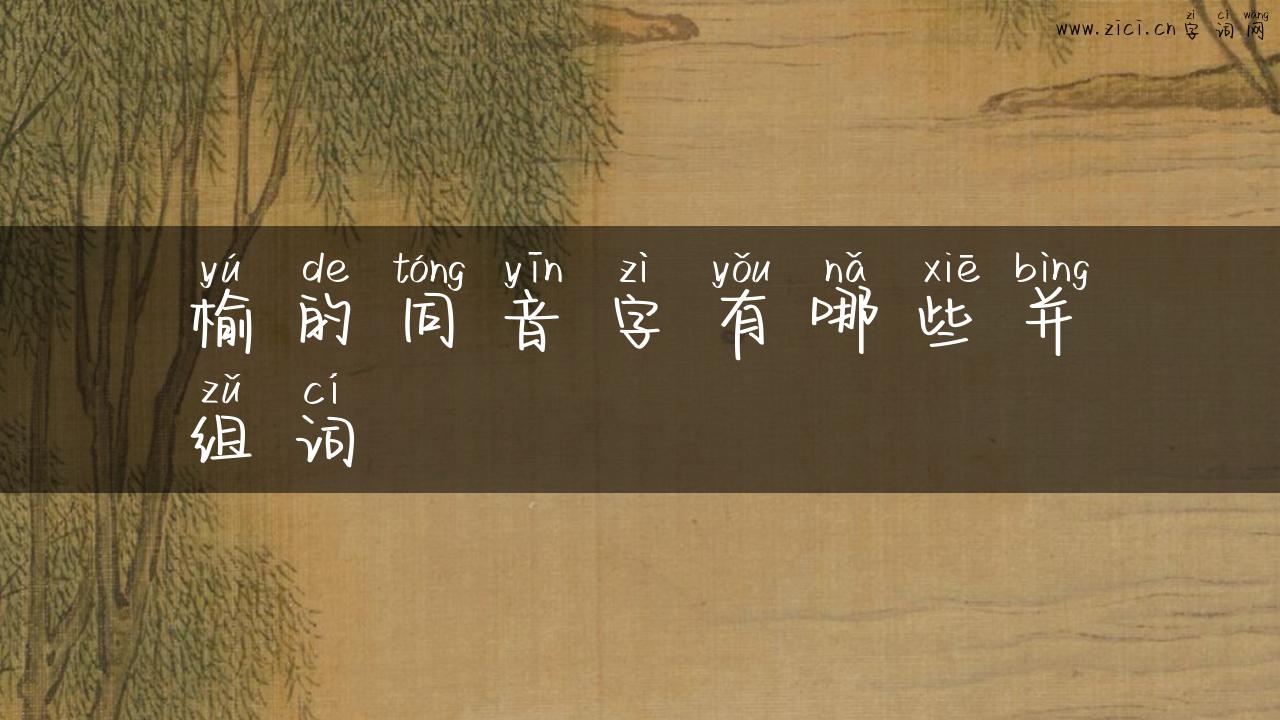 zì cí wǎng
www.zici.cn字词网
yú de tóng yīn zì yǒu nǎ xiē bìng
榆的同音字有哪些并
zǔ cí
组词